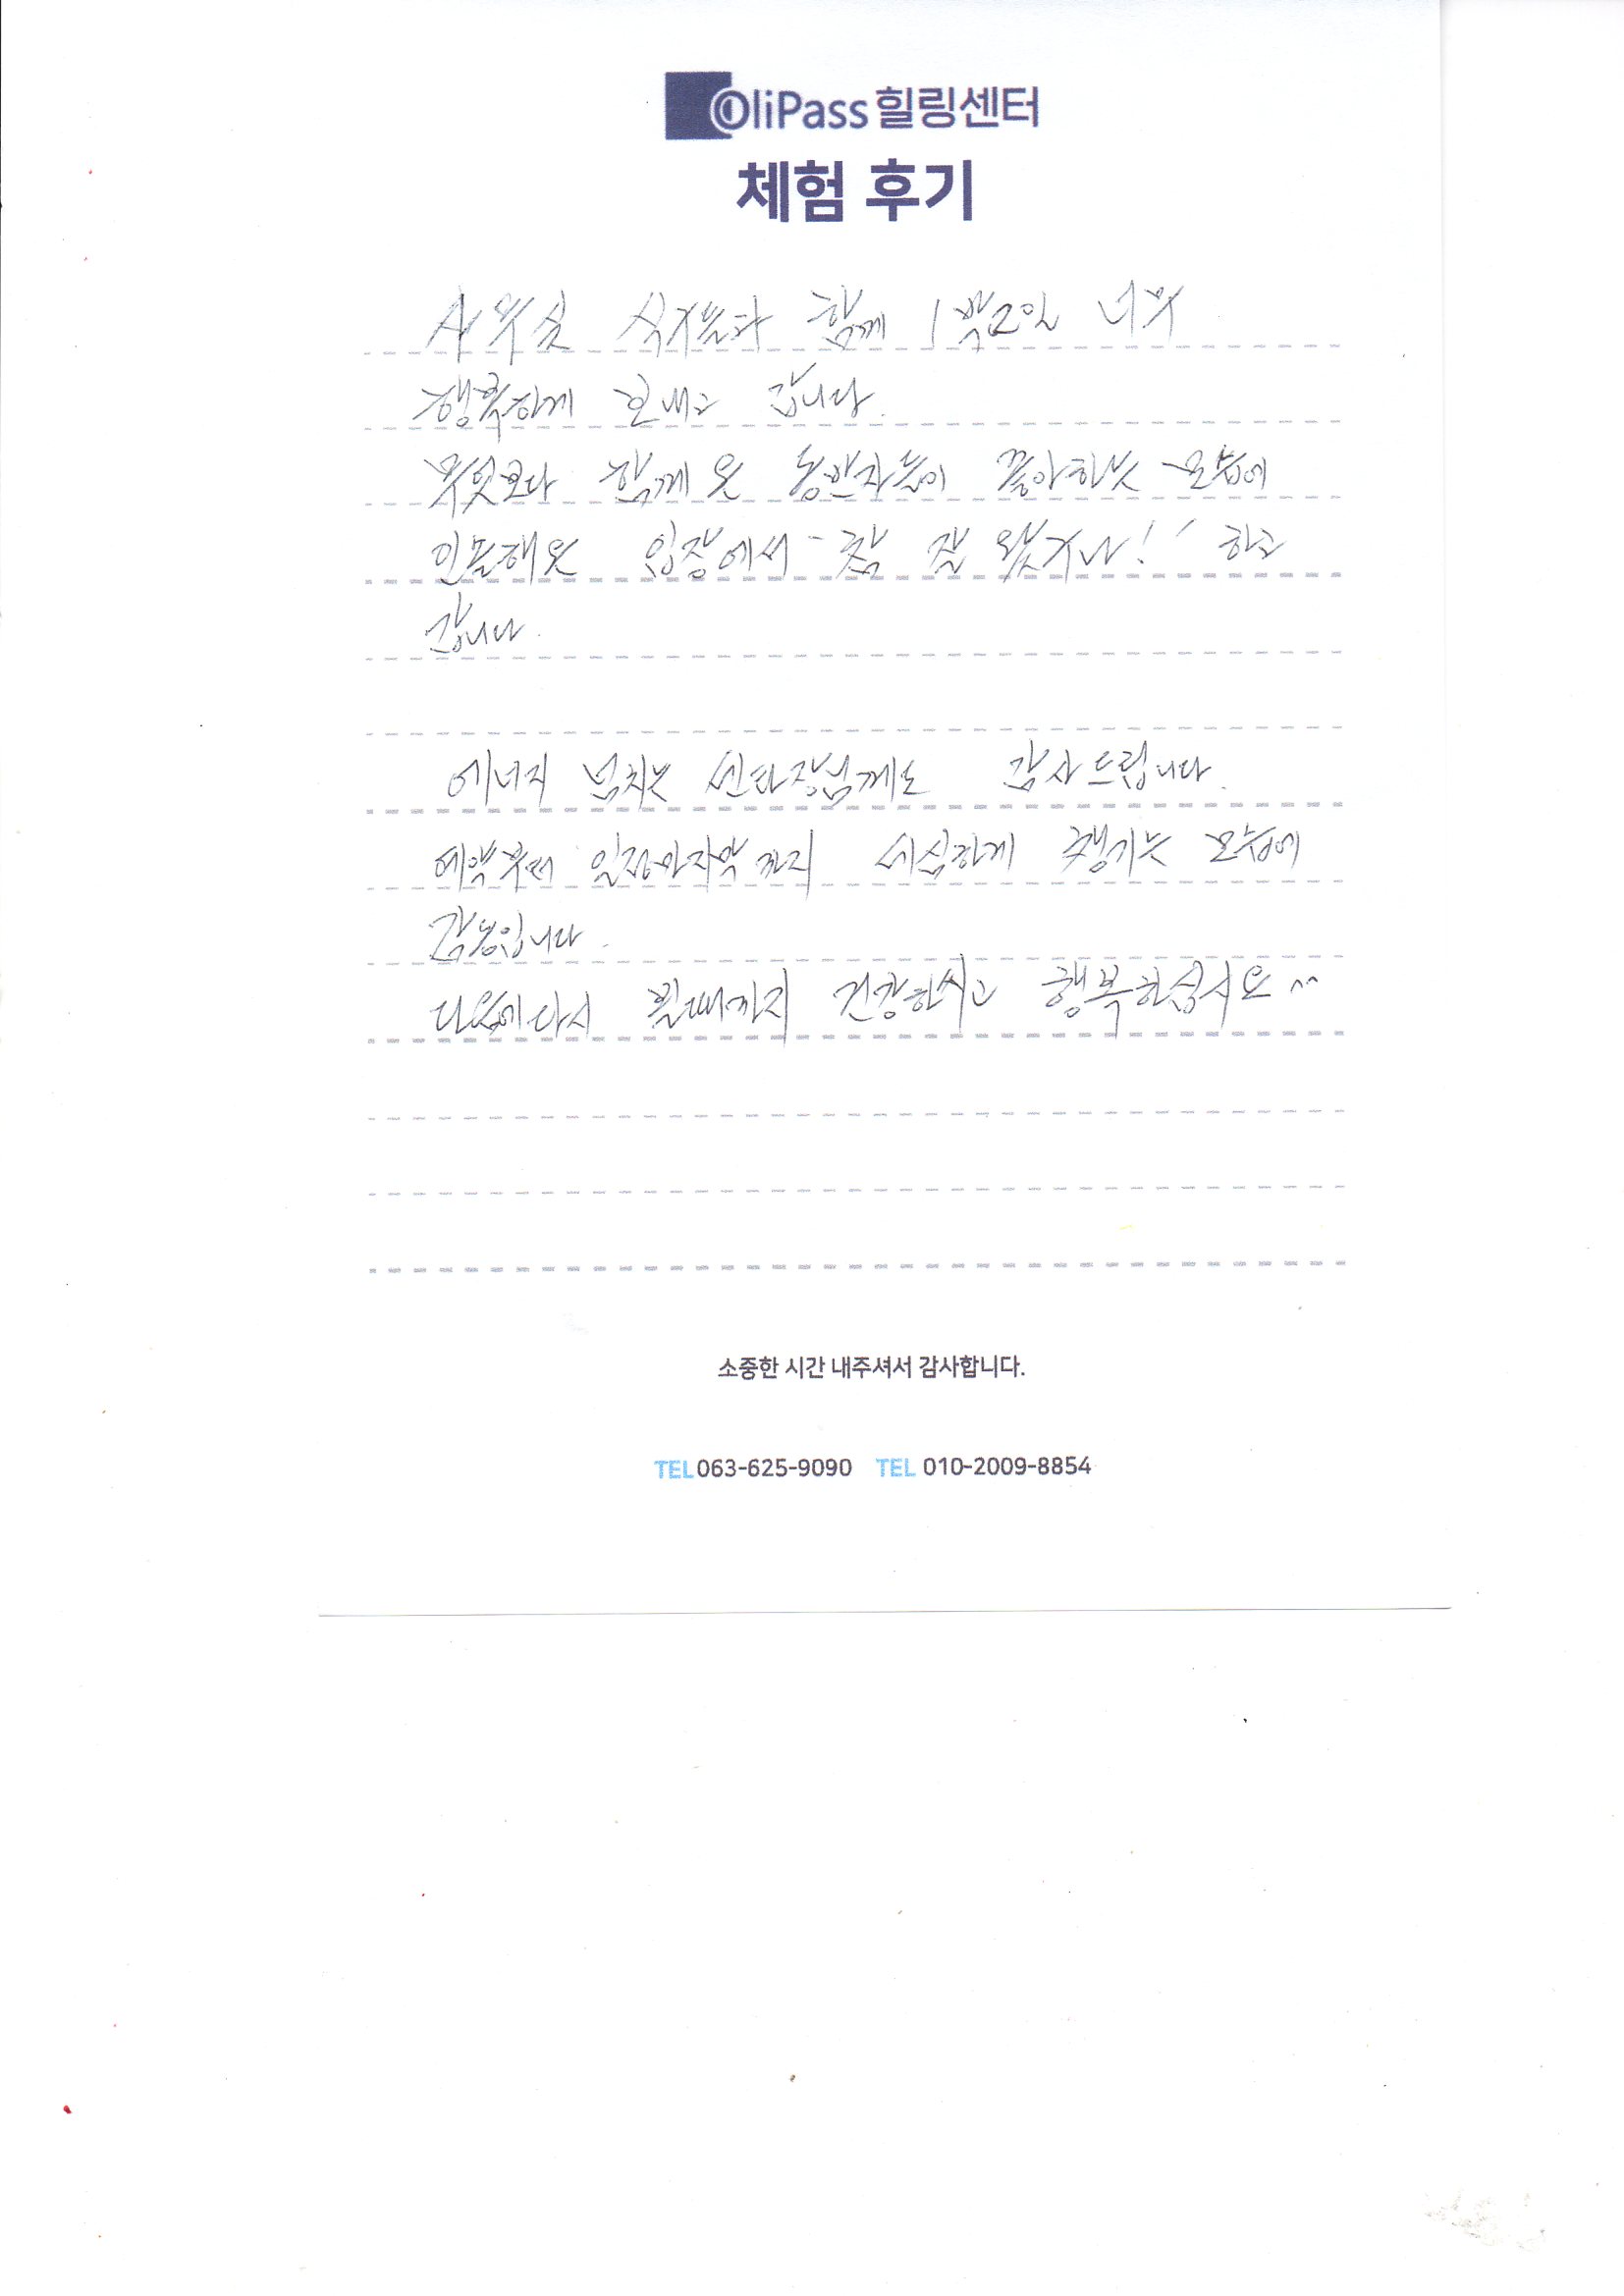 OliPass 힐링센터
체험 후기
사무실 식구들과 함께 1박2일 너무
행복하게 보내고 갑니다.
무엇보다 함께 온 동반자들이 좋아하는 모습에
인솔해온 입장에서 "참 잘 왔구나!" 하고
갑니다.
에너지 넘치는 센타장님께도 감사드립니다.
예약부터 일정마지막까지 세심하게 챙기는 모습에
감동입니다.
다음에 다시 뵐때까지 건강하시고 행복하십시요^^
소중한 시간 내주셔서 감사합니다.
TEL 063-625-9090 TEL 010-2009-8854